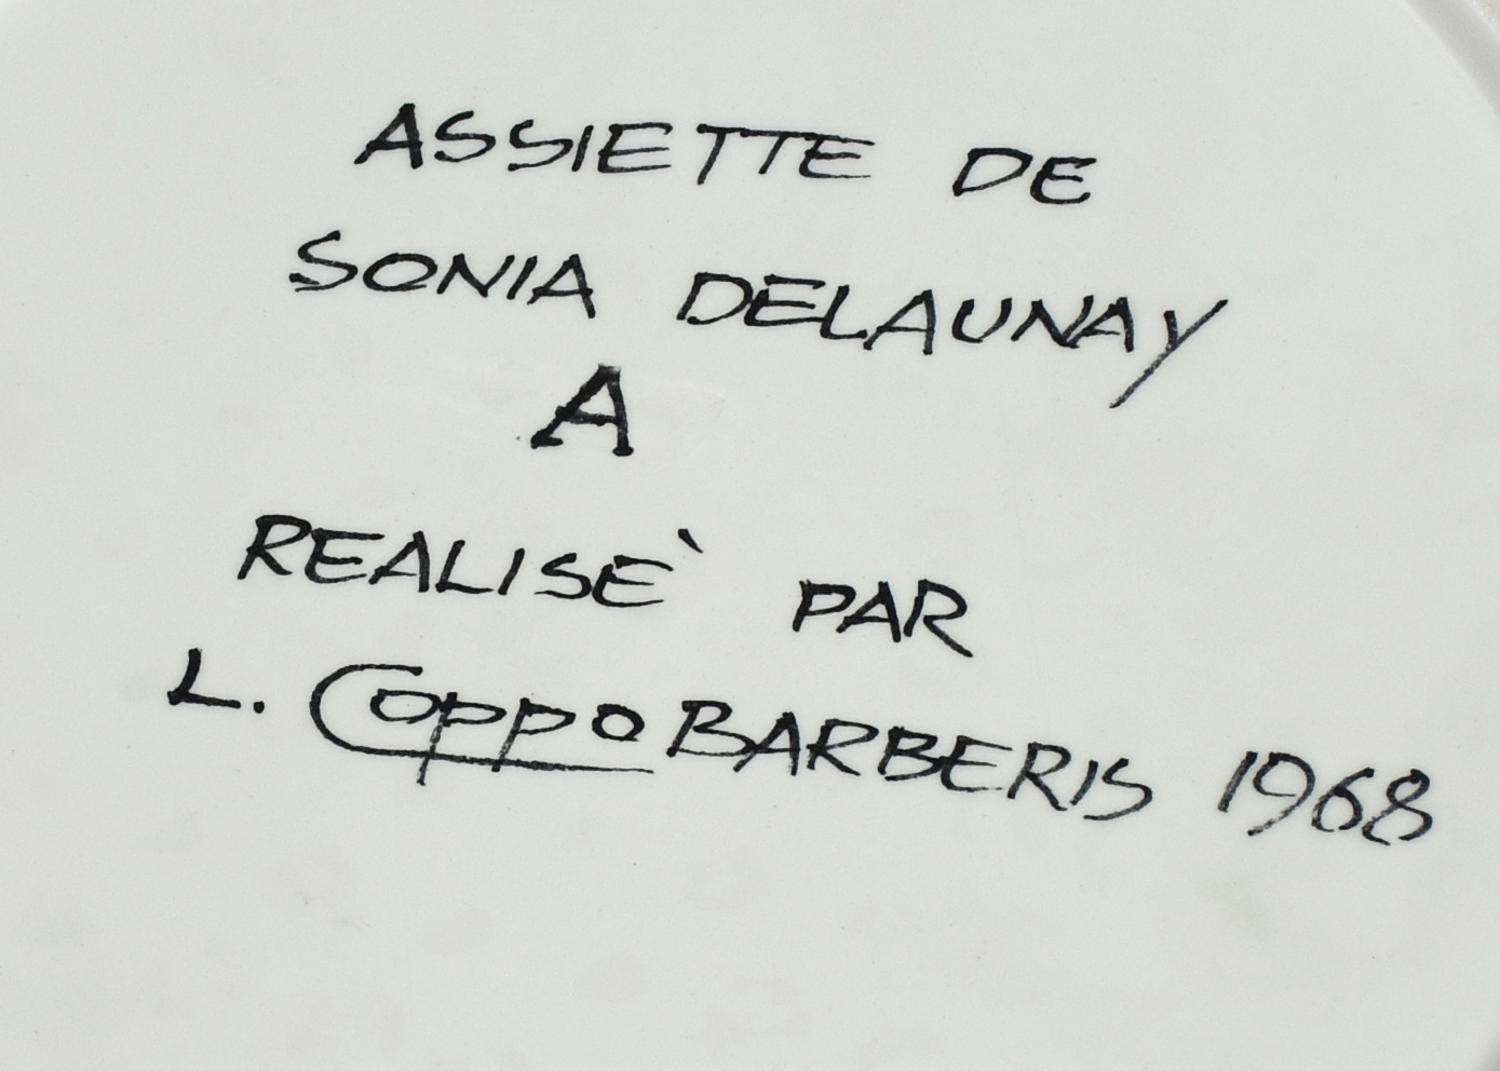 ASSIETTE DE
SONIA DELAUNAY
A
REALISE` PAR
L. COPPO BARBERIS 1968